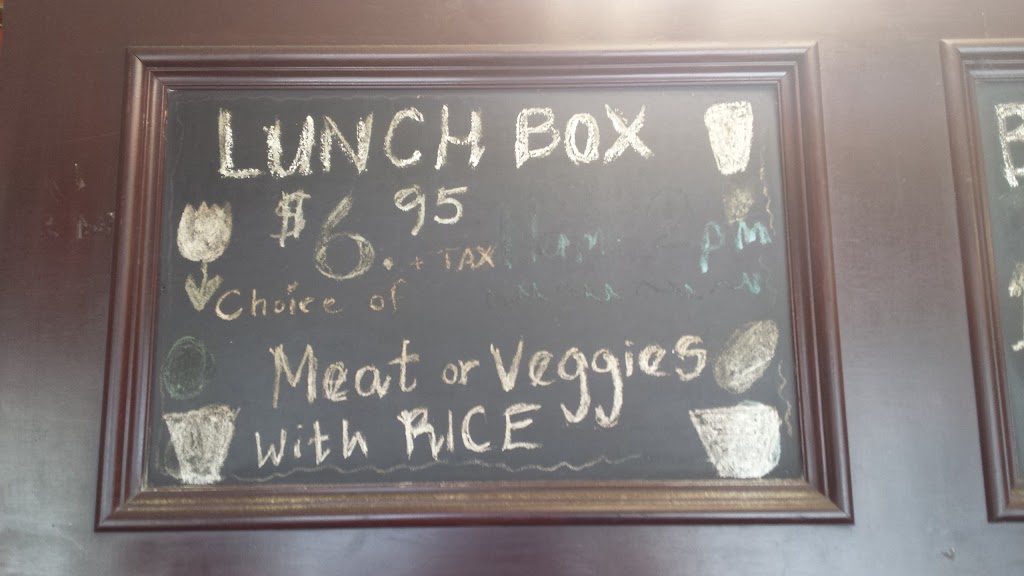 LUNCH BOX
$6.95 + TAX 11am 2 pm
Choice of
Meat or Veggies
with RICE
B